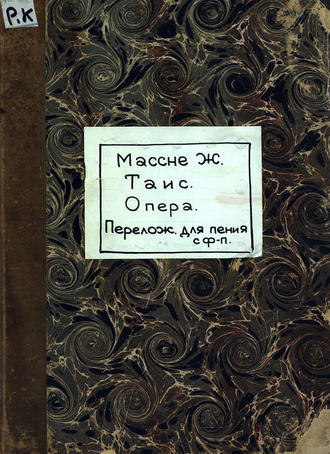 Р.К
Массне Ж.
Таис.
Опера.
Перелож. для пения
с ф-п.